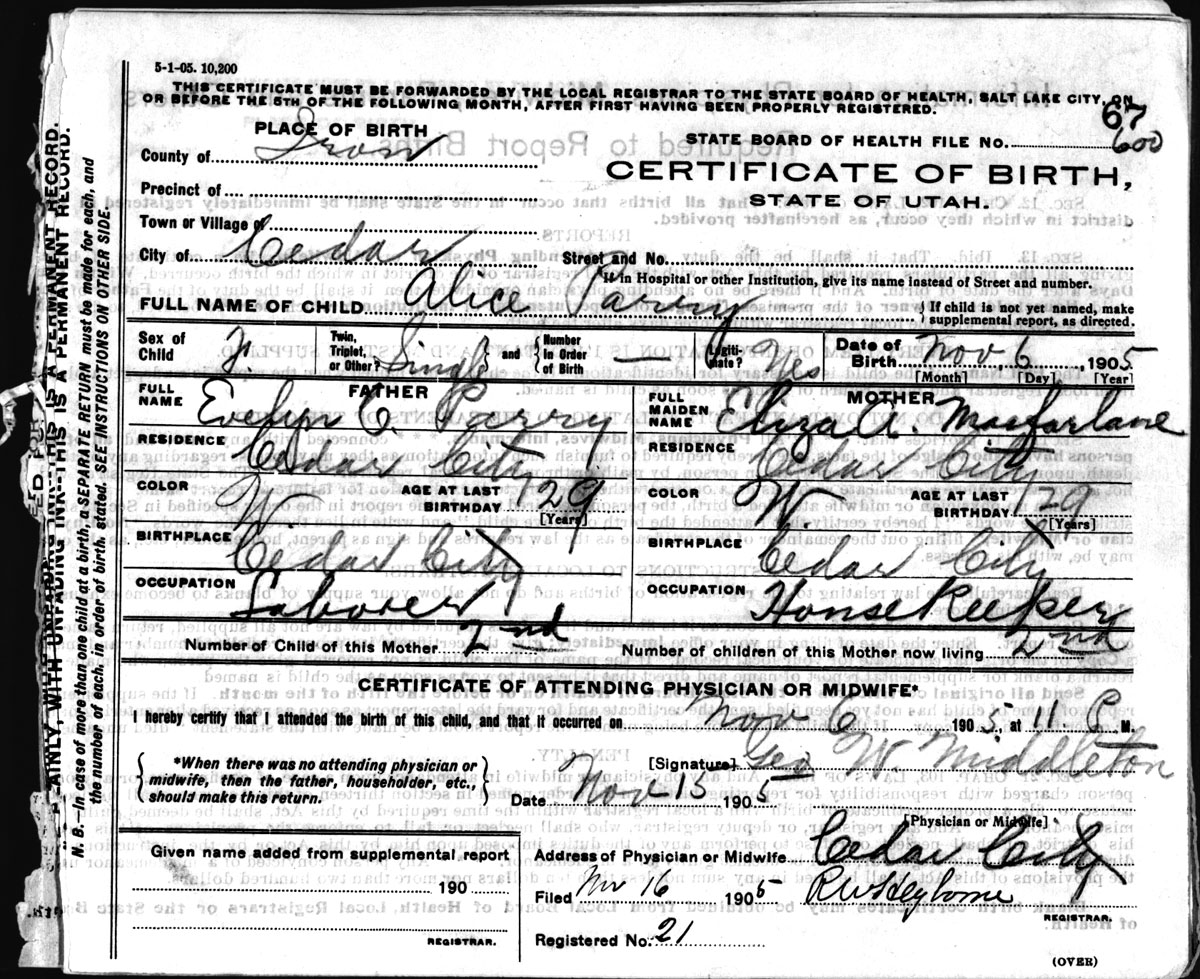 5-1-05. 10,200
THIS CERTIFICATE MUST BE FORWARDED BY THE LOCAL REGISTRAR TO THE STATE BOARD OF HEALTH, SALT LAKE CITY, ON
OR BEFORE THE 5TH OF THE FOLLOWING MONTH, AFTER FIRST HAVING BEEN PROPERLY REGISTERED.
67
PLACE OF BIRTH
STATE BOARD OF HEALTH FILE NO. 600
County of Iron
CERTIFICATE OF BIRTH,
Precinct of
STATE OF UTAH.
Town or Village of
City of Cedar
Street and No.
If in Hospital or other Institution, give its name instead of Street and number.
FULL NAME OF CHILD Alice Parry
If child is not yet named, make
supplemental report, as directed.
Sex of Child F.
Twin, Triplet, or Other? Single and Number in Order of Birth —
Legiti- mate? Yes
Date of Birth Nov 6, 1905
[Month] [Day] [Year]
FATHER
FULL NAME Evelyn C. Parry
MOTHER
FULL MAIDEN NAME Eliza A. Macfarlane
RESIDENCE Cedar City
RESIDENCE Cedar City
COLOR W AGE AT LAST BIRTHDAY 29 [Years]
COLOR W AGE AT LAST BIRTHDAY 29 [Years]
BIRTHPLACE Cedar City
BIRTHPLACE Cedar City
OCCUPATION Laborer
OCCUPATION House Keeper
Number of Child of this Mother 2nd
Number of children of this Mother now living 2nd
CERTIFICATE OF ATTENDING PHYSICIAN OR MIDWIFE*
I hereby certify that I attended the birth of this child, and that it occurred on Nov 6 1905, at 11 P. M.
*When there was no attending physician or
midwife, then the father, householder, etc.,
should make this return.
[Signature] Geo W. Middleton
Date Nov 15 1905
[Physician or Midwife]
Given name added from supplemental report
190
REGISTRAR.
Address of Physician or Midwife Cedar City
Filed Nov 16 1905
REGISTRAR.
Registered No. 21
(OVER)
N. B.—In case of more than one child at a birth, a SEPARATE RETURN must be made for each, and
the number of each, in order of birth, stated. SEE INSTRUCTIONS ON OTHER SIDE.
AINLY, WITH UNFADING INK--THIS IS A PERMANENT RECORD.